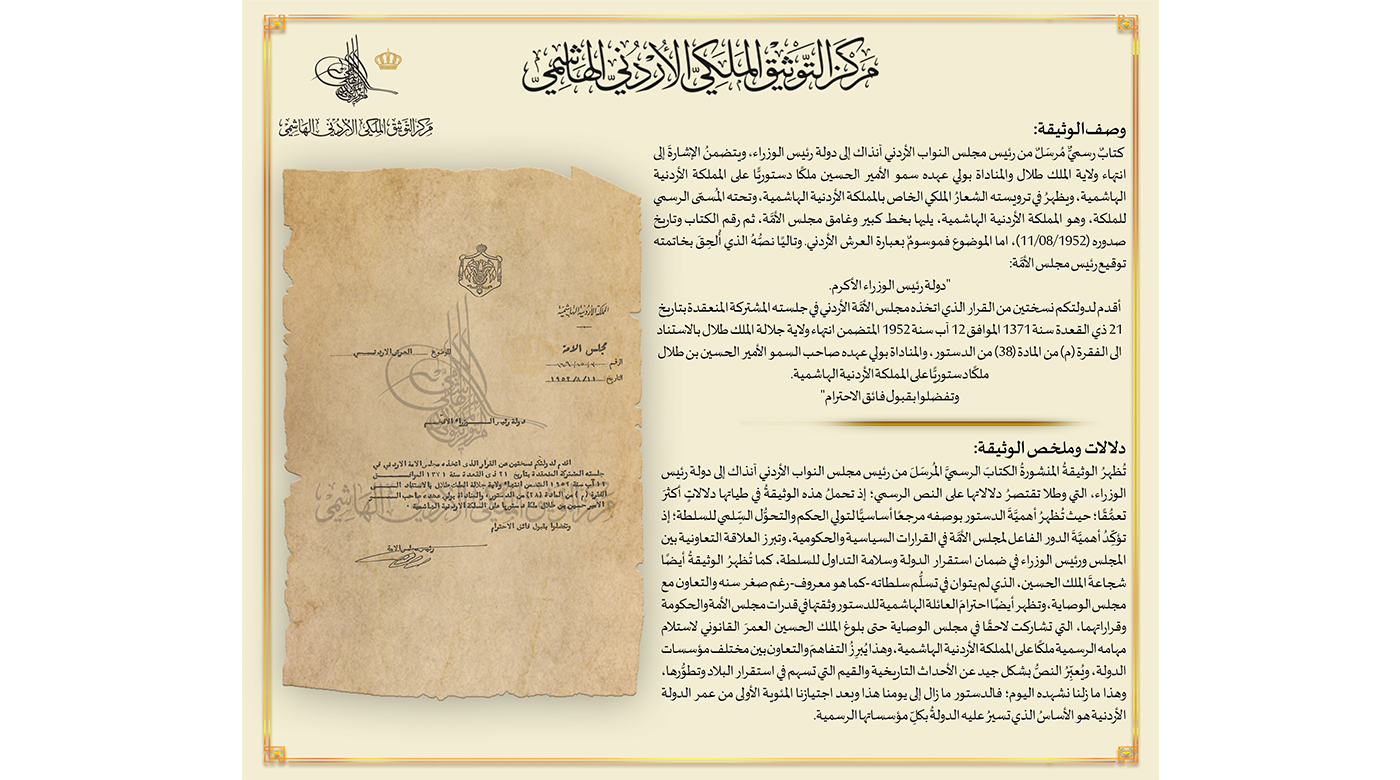 مَركَزُ التَّوثيقِ المَلَكيِّ الأُردُنيِّ الهَاشِمِيِّ
مركز التوثيق الملكي الأردني الهاشمي
وصف الوثيقة:
كتابٌ رسميٌّ مُرسَلٌ من رئيس مجلس النواب الأردني آنذاك إلى دولة رئيس الوزراء، ويتضمنُ الإشارةَ إلى
انتهاء ولاية الملك طلال والمناداة بولي عهده سمو الأمير الحسين ملكًا دستوريًّا على المملكة الأردنية
الهاشمية، ويظهرُ في ترويسته الشعارُ الملكي الخاص بالمملكة الأردنية الهاشمية، وتحته المُسمّى الرسمي
للملكة، وهو المملكة الأردنية الهاشمية، يليها بخط كبير وغامق مجلس الأمَّة، ثم رقم الكتاب وتاريخ
صدوره (11/08/1952)، اما الموضوع فموسومٌ بعبارة العرش الأردني. وتاليًا نصُّهُ الذي أُلحِقَ بخاتمته
توقيع رئيس مجلس الأمَّة:
"دولة رئيس الوزراء الأكرم.
أقدم لدولتكم نسختين من القرار الذي اتخذه مجلس الأمَّة الأردني في جلسته المشتركة المنعقدة بتاريخ
21 ذي القعدة سنة 1371 الموافق 12 آب سنة 1952 المتضمن انتهاء ولاية جلالة الملك طلال بالاستناد
الى الفقرة (م) من المادة (38) من الدستور، والمناداة بولي عهده صاحب السمو الأمير الحسين بن طلال
ملكًا دستوريًّا على المملكة الأردنية الهاشمية.
وتفضلوا بقبول فائق الاحترام"
دلالات وملخص الوثيقة:
تُظهرُ الوثيقةُ المنشورةُ الكتابَ الرسميَّ المُرسَلَ من رئيس مجلس النواب الأردني آنذاك إلى دولة رئيس
الوزراء، التي وطلا تقتصرُ دلالاتها على النص الرسمي؛ إذ تحملُ هذه الوثيقةُ في طياتها دلالاتٍ أكثرَ
تعمُّقًا؛ حيث تُظهرُ أهميَّةَ الدستور بوصفه مرجعًا أساسيًّا لتولي الحكم والتحوُّل السِّلمي للسلطة؛ إذ
تؤكّدُ أهميَّةَ الدور الفاعل لمجلس الأمَّة في القرارات السياسية والحكومية، وتبرز العلاقة التعاونية بين
المجلس ورئيس الوزراء في ضمان استقرار الدولة وسلامة التداول للسلطة، كما تُظهرُ الوثيقةُ أيضًا
شجاعةَ الملك الحسين، الذي لم يتوان في تسلُّم سلطاته -كما هو معروف- رغم صغر سنه والتعاون مع
مجلس الوصاية، وتظهر أيضًا احترامَ العائلة الهاشمية للدستور وثقتها في قدرات مجلس الأمة والحكومة
وقراراتهما، التي تشاركت لاحقًا في مجلس الوصاية حتى بلوغ الملك الحسين العمرَ القانوني لاستلام
مهامه الرسمية ملكًا على المملكة الأردنية الهاشمية، وهذا يُبرِزُ التفاهمَ والتعاون بين مختلف مؤسسات
الدولة، ويُعبِّرُ النصُّ بشكل جيد عن الأحداث التاريخية والقيم التي تسهم في استقرار البلاد وتطوُّرها،
وهذا ما زلنا نشهده اليوم؛ فالدستور ما زال إلى يومنا هذا وبعد اجتيازنا المئوية الأولى من عمر الدولة
الأردنية هو الأساسُ الذي تسيرُ عليه الدولةُ بكلِّ مؤسساتها الرسمية.
المملكة الأردنية الهاشمية
مجلس الامة
الرقم
التاريخ ١٩٥٢/٨/١١
الموضوع العرش الاردنــي
دولة رئيس الــوزراء الأفخــم
اقدم لدولتكم نسختين من القرار الذي اتخذه مجلس الامة الاردني في
جلسته المشتركة المنعقدة بتاريخ ٢١ ذى القعدة سنة ١٣٧١ الموافــق
١٢ آب سنة ١٩٥٢ المتضمن انتهاء ولاية جلالة الملك طلال بالاستناد الــى
الفقرة (م) من المادة (٣٨) من الدستور، والمناداة بولي عهده صاحب الســمو
الأمير حسين بن طلال ملكا دستوريا على المملكة الاردنية الهاشمية ٠
وتفضلوا بقبول فائق الاحترام
رئيس مجلس الامة
مركز التوثيق الملكي الأردني الهاشمي